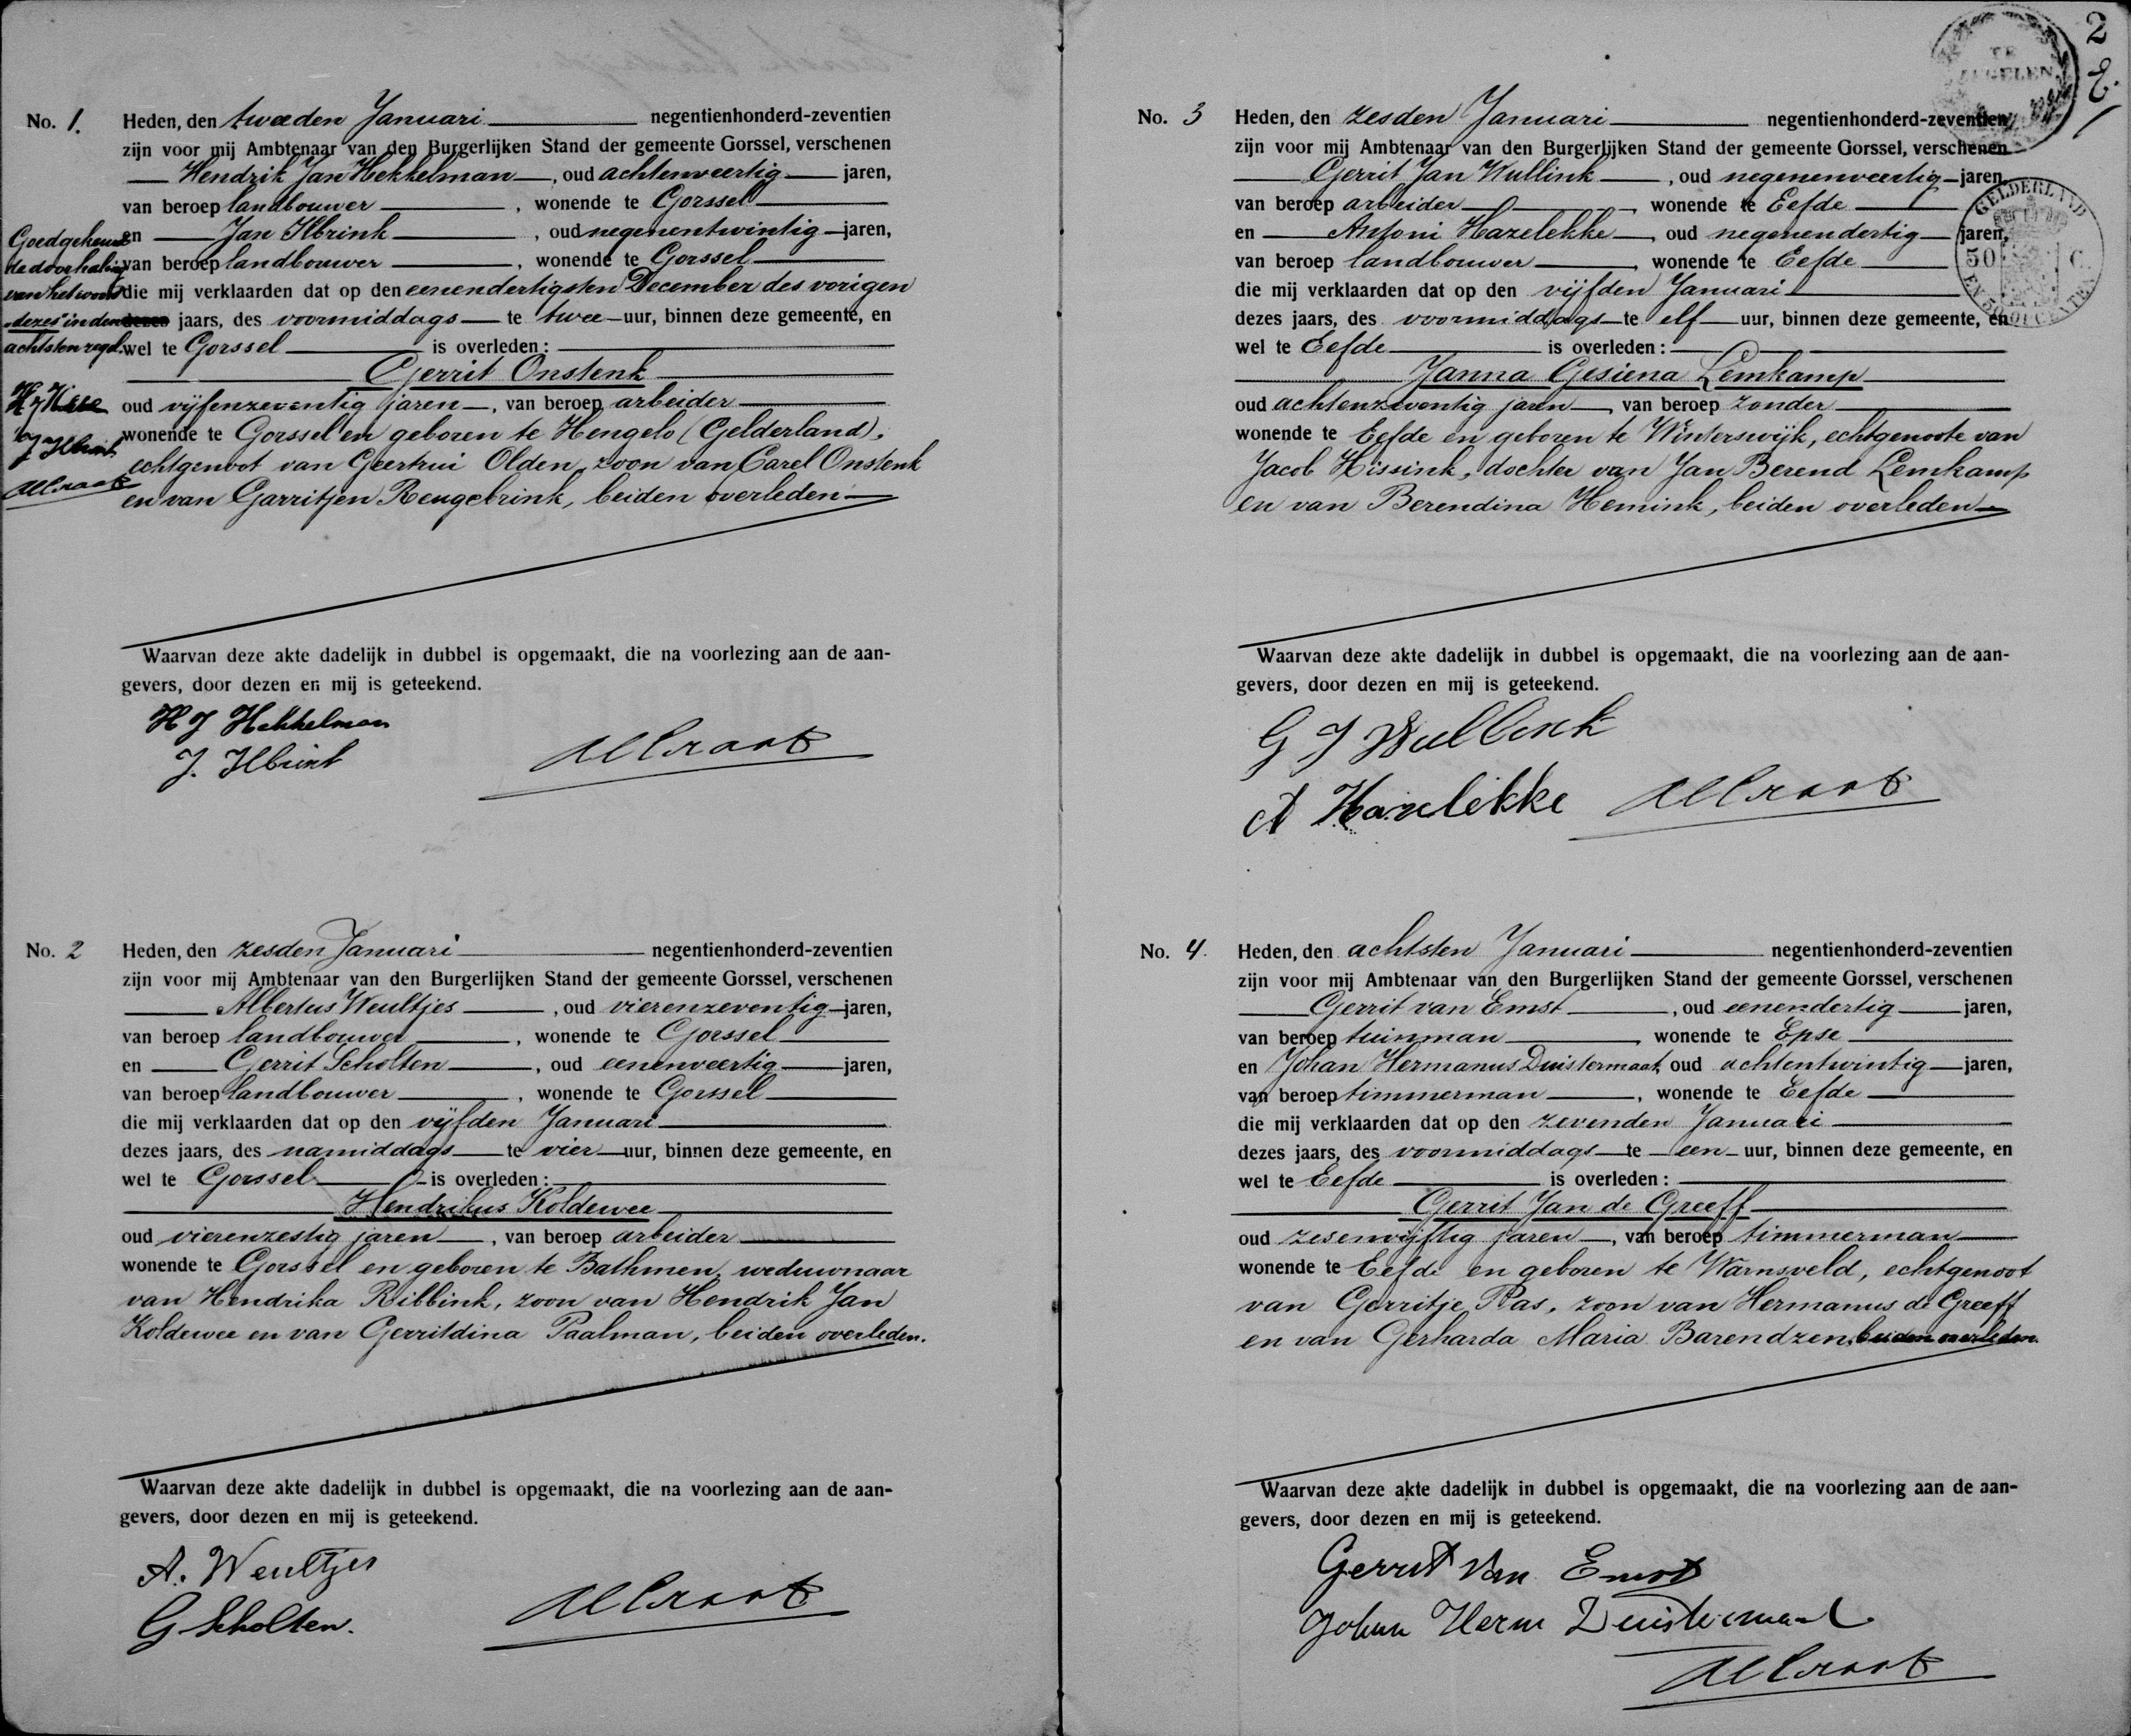 2
E.
TE
GELDERLAND
50 C.
EN 50 OPCENTEN
No. 1. Heden, den tweeden Januari negentienhonderd-zeventien
zijn voor mij Ambtenaar van den Burgerlijken Stand der gemeente Gorssel, verschenen
Hendrik Jan Hekkelman, oud achtenveertig jaren,
van beroep landbouwer, wonende te Gorssel
en Jan Ilbrink, oud negenentwintig jaren,
van beroep landbouwer, wonende te Gorssel
die mij verklaarden dat op den eenendertigsten December des vorigen
dezes jaars, des voormiddags te twee uur, binnen deze gemeente, en
wel te Gorssel is overleden:
Gerrit Onstenk
oud vijfenzeventig jaren, van beroep arbeider
wonende te Gorssel en geboren te Hengelo (Gelderland),
echtgenoot van Geertrui Olden, zoon van Carel Onstenk
en van Garritjen Reugebrink, beiden overleden
Goedgekeurd
de doorhaling
van het woord
"dezes" in den
achtsten regel.
J Ilbrink
Waarvan deze akte dadelijk in dubbel is opgemaakt, die na voorlezing aan de aan-
gevers, door dezen en mij is geteekend.
H J Hekkelman
J. Ilbrink
No. 2 Heden, den zesden Januari negentienhonderd-zeventien
zijn voor mij Ambtenaar van den Burgerlijken Stand der gemeente Gorssel, verschenen
Albertus Weultjes, oud vierenzeventig jaren,
van beroep landbouwer, wonende te Gorssel
en Gerrit Scholten, oud eenenveertig jaren,
van beroep landbouwer, wonende te Gorssel
die mij verklaarden dat op den vijfden Januari
dezes jaars, des namiddags te vier uur, binnen deze gemeente, en
wel te Gorssel is overleden:
Hendrikus Koldewee
oud vierenzestig jaren, van beroep arbeider
wonende te Gorssel en geboren te Bathmen, weduwnaar
van Hendrika Ribbink, zoon van Hendrik Jan
Koldewee en van Gerritdina Paalman, beiden overleden.
Waarvan deze akte dadelijk in dubbel is opgemaakt, die na voorlezing aan de aan-
gevers, door dezen en mij is geteekend.
A. Weultjes
G Scholten.
No. 3 Heden, den zesden Januari negentienhonderd-zeventien
zijn voor mij Ambtenaar van den Burgerlijken Stand der gemeente Gorssel, verschenen
Gerrit Jan Wullink, oud negenenveertig jaren,
van beroep arbeider, wonende te Eefde
en Antoni Hazelekke, oud negenendertig jaren,
van beroep landbouwer, wonende te Eefde
die mij verklaarden dat op den vijfden Januari
dezes jaars, des voormiddags te elf uur, binnen deze gemeente, en
wel te Eefde is overleden:
Janna Gesiena Lemkamp
oud achtenzeventig jaren, van beroep zonder
wonende te Eefde en geboren te Winterswijk, echtgenoote van
Jacob Hissink, dochter van Jan Berend Lemkamp
en van Berendina Hemink, beiden overleden
Waarvan deze akte dadelijk in dubbel is opgemaakt, die na voorlezing aan de aan-
gevers, door dezen en mij is geteekend.
G J Wullink
A Hazelekke
No. 4. Heden, den achtsten Januari negentienhonderd-zeventien
zijn voor mij Ambtenaar van den Burgerlijken Stand der gemeente Gorssel, verschenen
Gerrit van Emst, oud eenendertig jaren,
van beroep tuinman, wonende te Epse
en Johan Hermanus Duistermaat, oud achtentwintig jaren,
van beroep timmerman, wonende te Eefde
die mij verklaarden dat op den zevenden Januari
dezes jaars, des voormiddags te een uur, binnen deze gemeente, en
wel te Eefde is overleden:
Gerrit Jan de Greeff
oud zesenvijftig jaren, van beroep timmerman
wonende te Eefde en geboren te Warnsveld, echtgenoot
van Gerritje Ras, zoon van Hermanus de Greeff
en van Gerharda Maria Barendzen, beiden overleden.
Waarvan deze akte dadelijk in dubbel is opgemaakt, die na voorlezing aan de aan-
gevers, door dezen en mij is geteekend.
Gerrit van Emst
Johan Herm Duistermaat